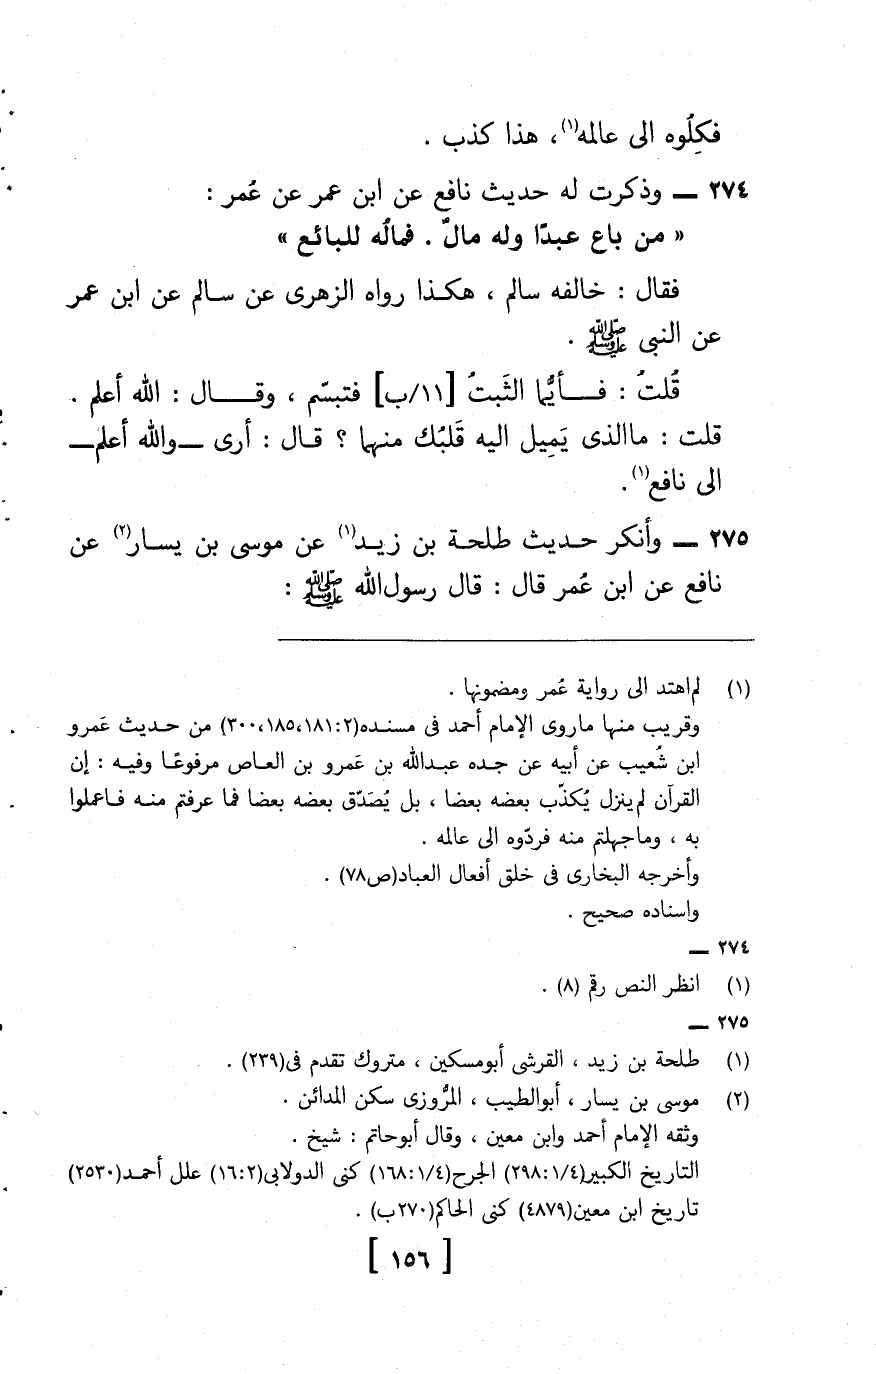 فكِلُوه الى عالمه(١)، هذا كذب .
٢٧٤ ــ وذكرت له حديث نافع عن ابن عمر عن عُمر :
« من باع عبدًا وله مالٌ . فمالُه للبائع »
فقال : خالفه سالم ، هكذا رواه الزهرى عن سالم عن ابن عمر
عن النبى ﷺ .
قُلتُ : فأيُّما الثَبتُ [١١/ب] فتبسّم ، وقال : الله أعلم .
قلت : ماالذى يَمِيل اليه قَلبُك منها ؟ قال : أرى ــوالله أعلم ــ
الى نافع(١).
٢٧٥ ــ وأنكر حديث طلحة بن زيد(١) عن موسى بن يسار(٢) عن
نافع عن ابن عُمر قال : قال رسول الله ﷺ :
(١) لم اهتد الى رواية عُمر ومضمونها .
وقريب منها ماروى الإمام أحمد فى مسنده(٣٠٠،١٨٥،١٨١:٢) من حديث عَمرو
ابن شُعيب عن أبيه عن جده عبدالله بن عَمرو بن العاص مرفوعًا وفيه : إن
القرآن لم ينزل يُكذّب بعضه بعضا ، بل يُصَدّق بعضه بعضا فما عرفتم منه فاعملوا
به ، وماجهلتم منه فردّوه الى عالمه .
وأخرجه البخارى فى خلق أفعال العباد(ص٧٨) .
واسناده صحيح .
٢٧٤ ــ
(١) انظر النص رقم (٨) .
٢٧٥ ــ
(١) طلحة بن زيد ، القرشى أبومسكين ، متروك تقدم فى(٢٣٩) .
(٢) موسى بن يسار ، أبوالطيب ، المرُّوزى سكن المدائن .
وثقه الإمام أحمد وابن معين ، وقال أبوحاتم : شيخ .
التاريخ الكبير(٢٩٨:١/٤) الجرح(١٦٨:١/٤) كنى الدولابى(١٦:٢) علل أحمد(٢٥٣٠)
تاريخ ابن معين(٤٨٧٩) كنى الحاكم(٢٧٠ب) .
[ ١٥٦ ]